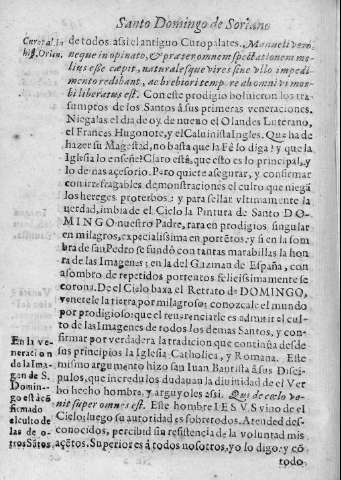 Santo Domingo de Soriano
Curopal. in
hist. Orien.
de todos. assi el antiguo Curopalates. Manueli verò,
neque inopinato, & præter omnem spectationem me-
lius esse cæpit, naturalesque vires sine vllo impedi-
mento redibant, ac brebiori tempore ab omni vi mor-
bi liberatus est. Con este prodigio boluieron los tra-
sumptos de los Santos à sus primeras veneraciones.
Niegalas el dia de oy, de nueuo el Olandes Luterano,
el Frances Hugonote, y el Caluinista Ingles. Que ha de
hazer su Magestad, no basta que la Fè lo diga? y que la
Iglesia lo enseñe? Claro està, que esto es lo principal, y
lo demas açesorio. Pero quiere asegurar, y confirmar
con irrefragables demonstraciones el culto que niegā
los hereges proterbos: y para sellar vltimamente la
uerdad, imbia de el Cielo la Pintura de Santo DO-
MINGO nuestro Padre, rara en prodigios, singular
en milagros, expecialissima en portētos: y si en la som-
bra de san Pedro se fundò con tantas marabillas la hon
ra de las Imagenes; en la del Guzman de España, con
asombro de repetidos portentos felicissimamente se
corona. De el Cielo baxa el Retrato de DOMINGO,
venerele la tierra por milagroso: conozcale el mundo
por prodigioso: que el reuerenciarle es admitir el cul-
to de las Imagenes de todos los demas Santos, y con-
firmar por verdadera la tradicion que continùa desde
sus principios la Iglesia Catholica, y Romana. Este
mismo argumento hizo san Iuan Bautista à sus Disci-
pulos, que incredulos dudauan la diuinidad de el Ver
bo hecho hombre, y arguyoles assi. Qui de cœlo ve-
nit super omnes est. Este hombre IESVS vino de el
Cielo; luego su autoridad es sobre todos. Atended des-
conocidos, percibid sin resistencia de la voluntad mis
açētos. Superior es à todos nosotros, yo lo digo: y cō
todo
En la ve-
neracion
de la Ima-
gen de S.
Domin-
go està cō
firmado
el culto de
las de o-
tros Sātos.